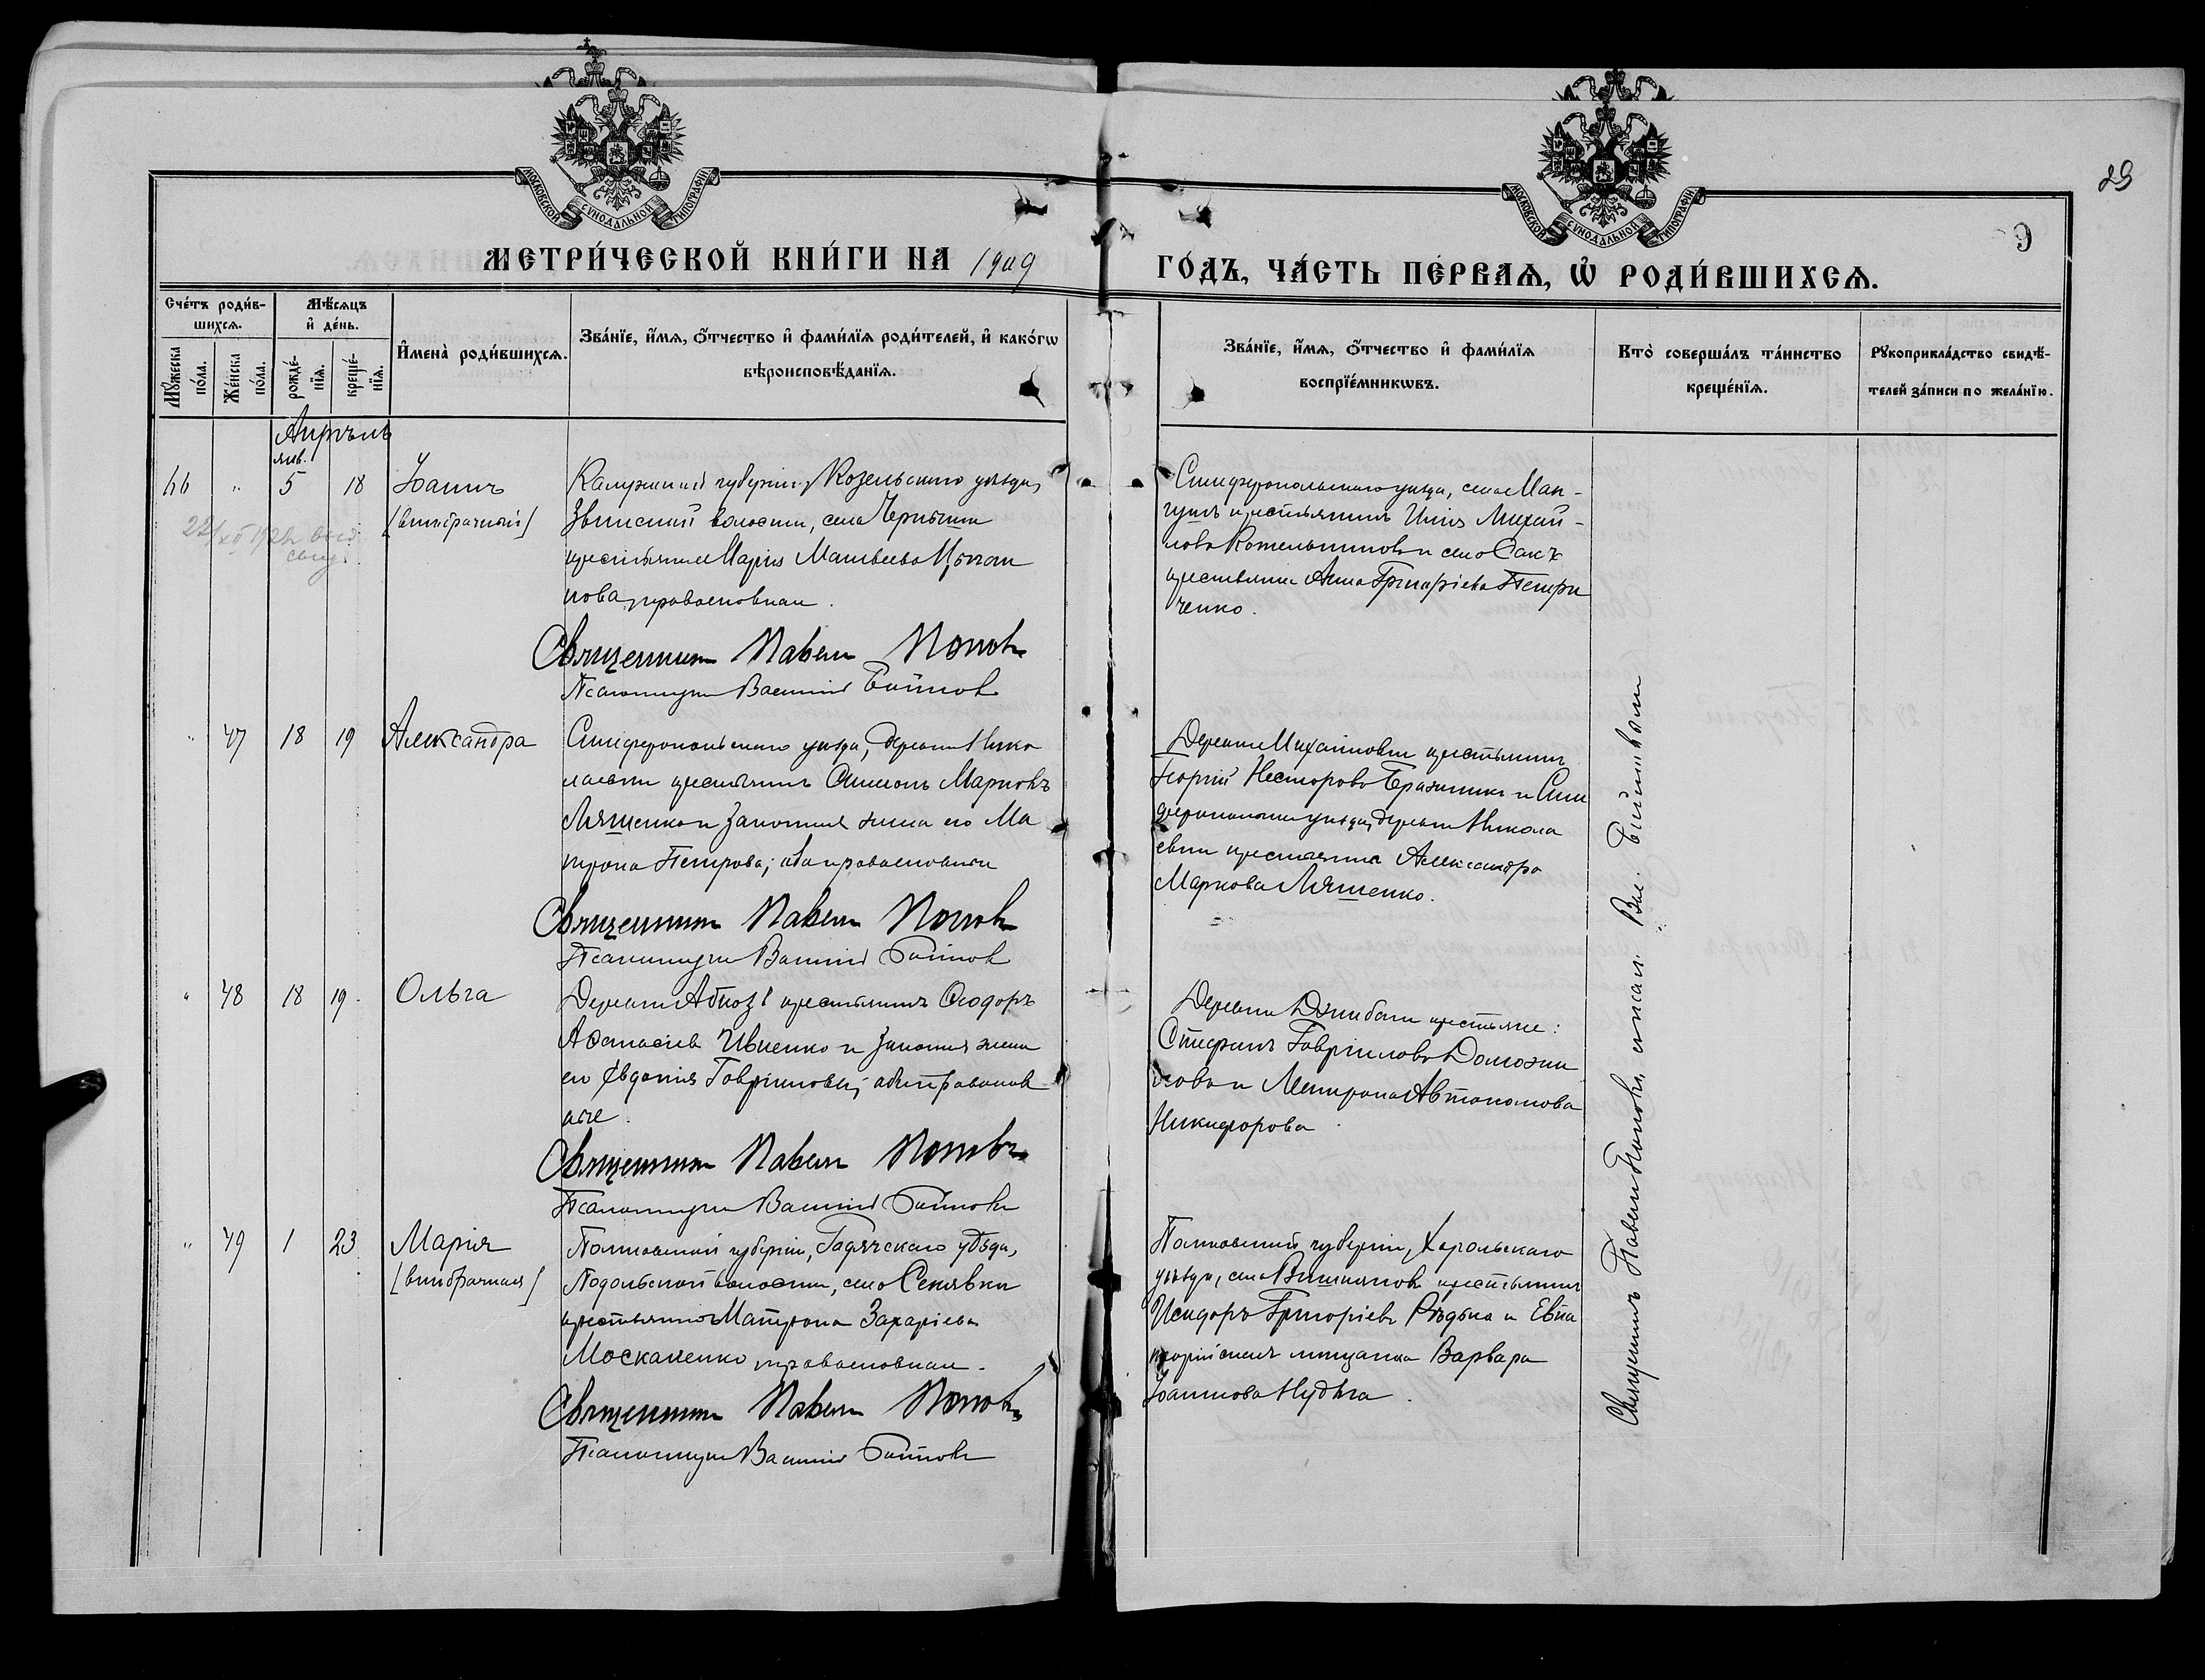 29
9
МОСКОВСКОЙ СУНОДАЛЬНОЙ ТИПОГРАФІИ
МОСКОВСКОЙ СУНОДАЛЬНОЙ ТИПОГРАФІИ
МЕТРИ́ЧЕСКОЙ КНИ́ГИ НА 1909
ГО́ДЪ, ЧА́СТЬ ПЕ́РВАѦ, Ѽ РОДИ́ВШИХСѦ.
Сче́тъ роди́в-
шихсѧ.
Мꙋжеска
по́ла.
Же́нска
по́ла.
Мѣ́сѧцъ
и҆ де́нь.
рожде́-
нїѧ.
креще́-
нїѧ.
И҆мена̀ роди́вшихсѧ.
Зва́нїе, и҆́мѧ, ѻ҆́тчество и҆ фами́лїѧ роди́телей, и҆ како́гѡ
вѣроисповѣ́данїѧ.
Зва́нїе, и҆́мѧ, ѻ҆́тчество и҆ фами́лїѧ
воспрїе́мникѡвъ.
Кто̀ соверша́лъ та́инство
креще́нїѧ.
Рꙋкоприкла́дство свидѣ́-
телей за́писи по жела́нїю.
Апрѣль
янв.
46 " 5 18 Іоаннъ
[внѣбрачный]
Калужской губерніи, Козельскаго уѣзда,
волости, села
крестьянка Марія Матвѣева
нова, православная.
Священникъ Павелъ Поповъ
Псаломщикъ Василій Бойков
Симферопольскаго уѣзда, села Ман-
гушъ крестьянинъ Илія Михай-
ловъ Котельниковъ и села Сакъ
крестьянка Анна Григоріева Петри
ченко.
" 47 18 19 Александра
Симферопольскаго уѣзда, деревни Нико
лаевки крестьянинъ Симеонъ Марковъ
Ляшенко и законная жена его Ма
трона Петрова; оба православные
Священникъ Павелъ Поповъ
Псаломщикъ Василій Бойков
Деревни Михайловки крестьянинъ
Георгій Несторовъ и Сим
ферополскаго уѣзда, деревни Никола
евки крестьянка Александра
Маркова Ляшенко.
" 48 18 19 Ольга
Деревни крестьянинъ Ѳеодоръ
Аѳанасіевъ Ивченко и законная жена
его Евдокія Гавріилова; оба православ
ные.
Священникъ Павелъ Поповъ
Псаломщикъ Василій Бойковъ
Деревни крестьяне:
Стефанъ Гавріиловъ
и Матрона Автономова
Никифорова
" 49 1 23 Марія
[внѣбрачная]
Полтавской губерніи, Гадячскаго уѣзда,
Подольской волости, села
крестьянка Матрона Захаріева
Москаленко, православная.
Священникъ Павелъ Поповъ
Псаломщикъ Василій Бойковъ
Полтавской губерніи, Хорольскаго
уѣзда, села крестьянинъ
Исидоръ Григоріевъ Рѣдька и Евпа
торійская мещанка Варвара
Іоаннова Нудьга.
Священникъ Павелъ Поповъ, псал. Вас. Бойковъ